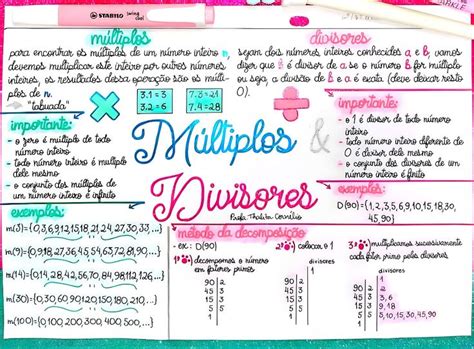 STABILO swing cool
múltiplos
para encontrar os múltiplos de um número inteiro n,
devemos multiplicar este inteiro por outros números
inteiros, os resultados dessa operação são os múlti-
plos de n.
"tabuada"
3.1=3
3.2=6
7.3=21
7.4=28
importante:
- o zero é múltiplo de todo
número inteiro
- todo número inteiro é múltiplo
dele mesmo
- o conjunto dos múltiplos de
um número inteiro é infinito
exemplos:
m(3)={0,3,6,9,12,15,18,21,24,27,30,33,...}
m(9)={0,9,18,27,36,45,54,63,72,81,90,...}
m(14)={0,14,28,42,56,70,84,98,112,126,...}
m(30)={0,30,60,90,120,150,180,210,...}
m(100)={0,100,200,300,400,500,...}
Múltiplos &
Divisores
divisores
sejam dois números inteiros conhecidos a e b, vamos
dizer que b é divisor de a se o número b for múltiplo
ou seja, a divisão de b e a é exata. (deve deixar resto
0).
importante:
- o 1 é divisor de todo número
inteiro
- todo número inteiro diferente de
0 é divisor dele mesmo
- o conjunto dos divisores de um
número inteiro é finito
exemplos:
D(90)={1,2,3,5,6,9,10,15,18,30,
45,90}
método da decomposição
- ex: D(90)
1º decompomos o número
em fatores primos
90 2
45 3
15 3
5 5
1
2º colocar o 1
divisores
1
90 2
45 3
15 3
5 5
1
3º multiplicamos sucessivamente
cada fator primo pelos divisores.
divisores
1
90 2 2
45 3 3,6
15 3 9,18
5 5 5,10,15,30,45,90
1